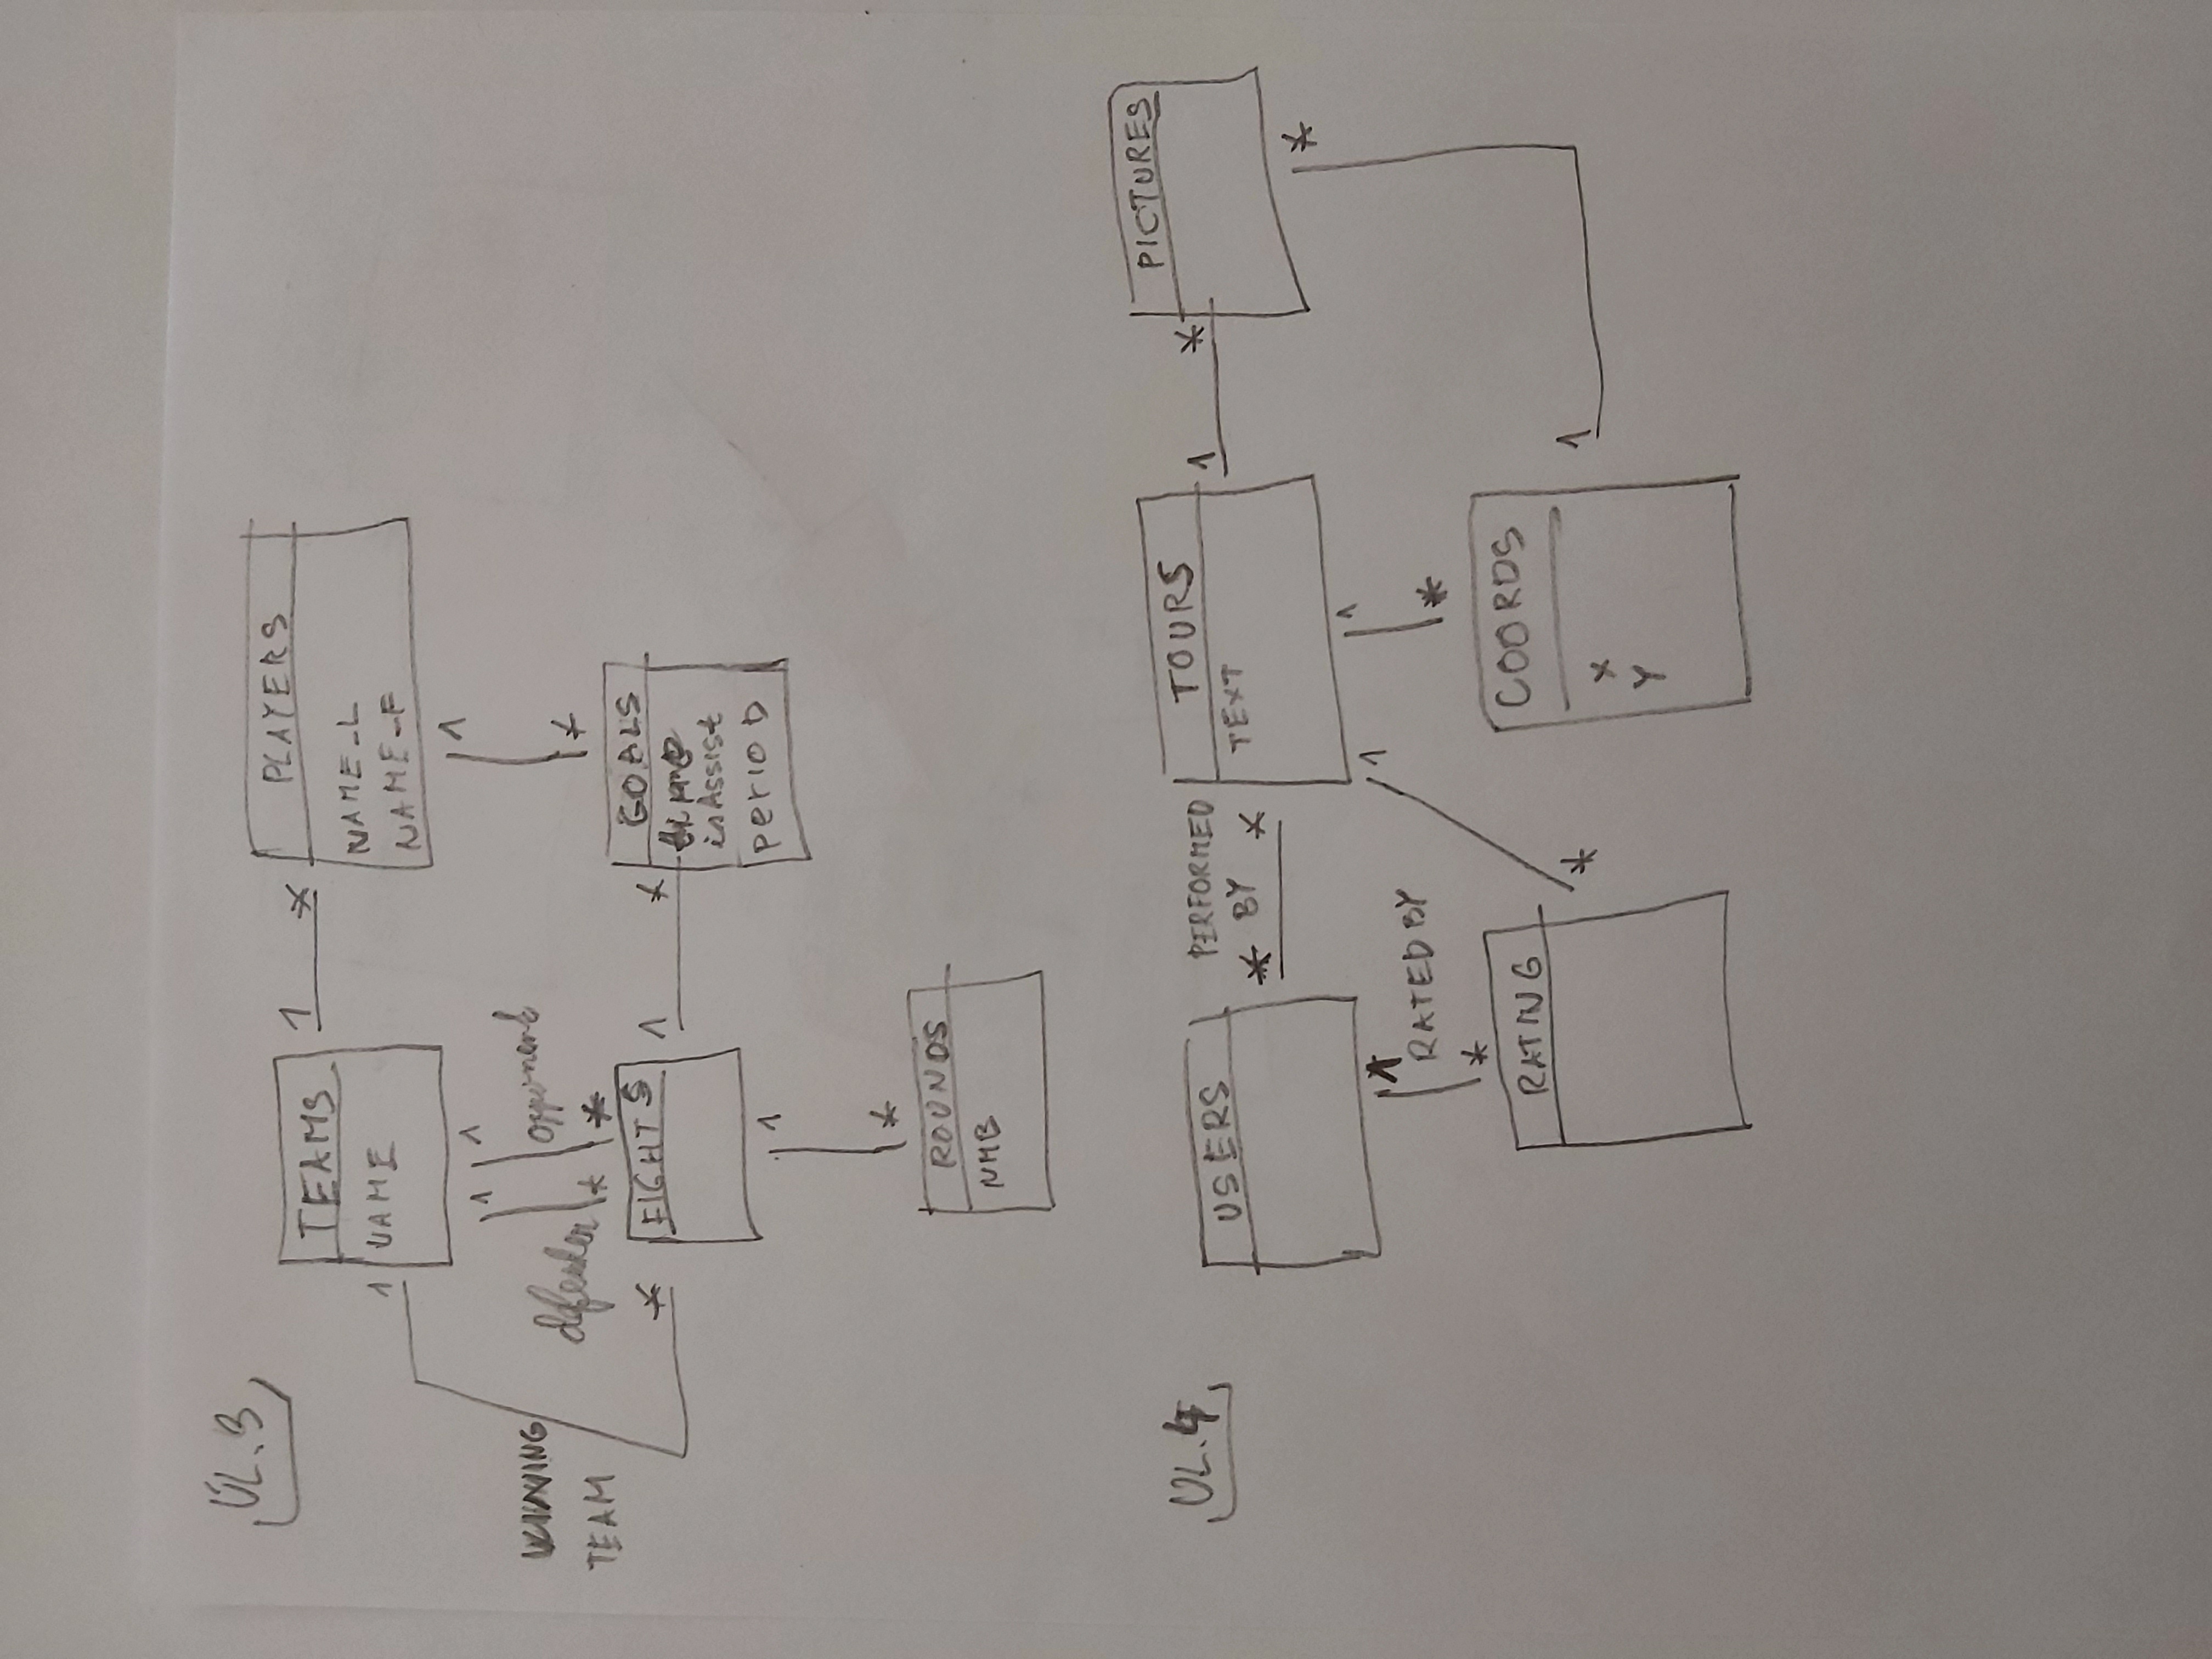 ÚL.3
TEAMS
NAME
1 *
PLAYERS
NAME_L
NAME_F
1
WINNING
TEAM
*
1 1
defender opponent
* *
1
*
FIGHTS
1 *
GOALS
time
isAssist
PERIOD
1
*
ROUNDS
NMB
ÚL.4
USERS
PERFORMED
* BY *
TOURS
TEXT
1 *
PICTURES
1
RATED BY
*
RATING
1
*
1
*
COORDS
X
Y
*
1